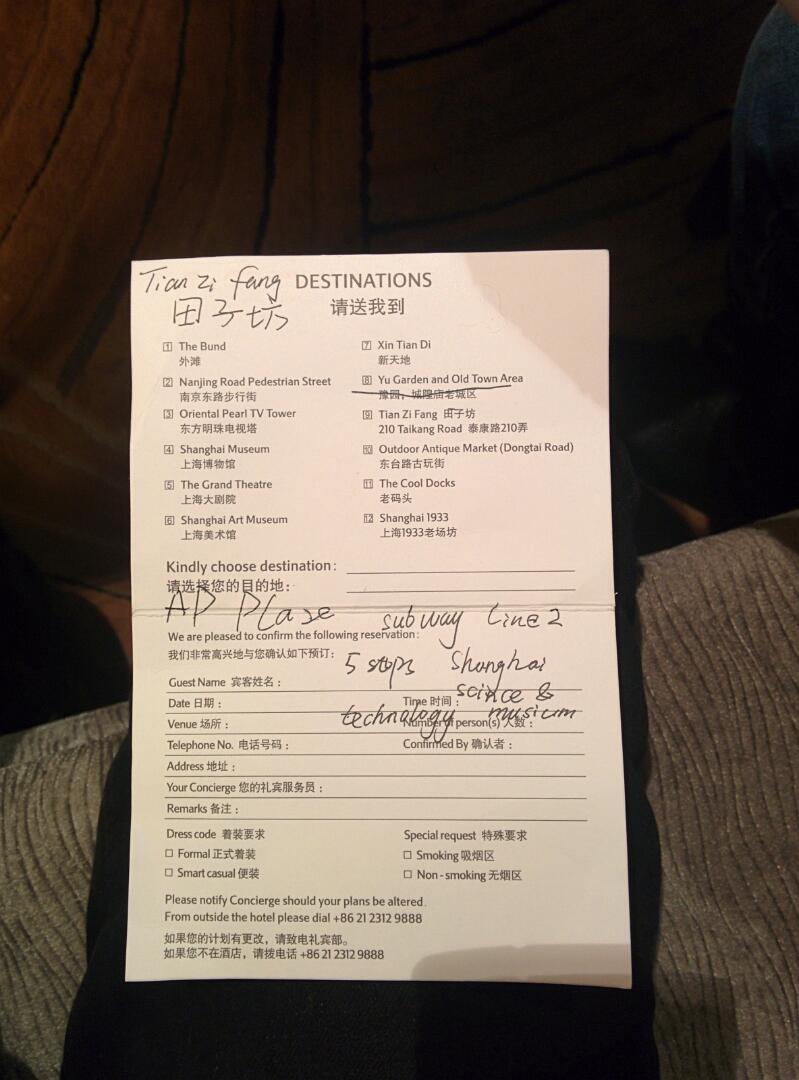 Tian Zi Fang
田子坊
DESTINATIONS
请送我到
1 The Bund
外滩
2 Nanjing Road Pedestrian Street
南京东路步行街
3 Oriental Pearl TV Tower
东方明珠电视塔
4 Shanghai Museum
上海博物馆
5 The Grand Theatre
上海大剧院
6 Shanghai Art Museum
上海美术馆
7 Xin Tian Di
新天地
8 Yu Garden and Old Town Area
豫园，城隍庙老城区
9 Tian Zi Fang 田子坊
210 Taikang Road 泰康路210弄
10 Outdoor Antique Market (Dongtai Road)
东台路古玩街
11 The Cool Docks
老码头
12 Shanghai 1933
上海1933老场坊
Kindly choose destination:
请选择您的目的地：
AP Plaze subway Line 2
We are pleased to confirm the following reservation:
我们非常高兴地与您确认如下预订：
5 stops Shanghai
science &
technology musicum
Guest Name 宾客姓名：
Date 日期： Time 时间：
Venue 场所： Number of person(s) 人数：
Telephone No. 电话号码： Confirmed By 确认者：
Address 地址：
Your Concierge 您的礼宾服务员：
Remarks 备注：
Dress code 着装要求
☐ Formal 正式着装
☐ Smart casual 便装
Special request 特殊要求
☐ Smoking 吸烟区
☐ Non-smoking 无烟区
Please notify Concierge should your plans be altered.
From outside the hotel please dial +86 21 2312 9888
如果您的计划有更改，请致电礼宾部。
如果您不在酒店，请拨电话 +86 21 2312 9888